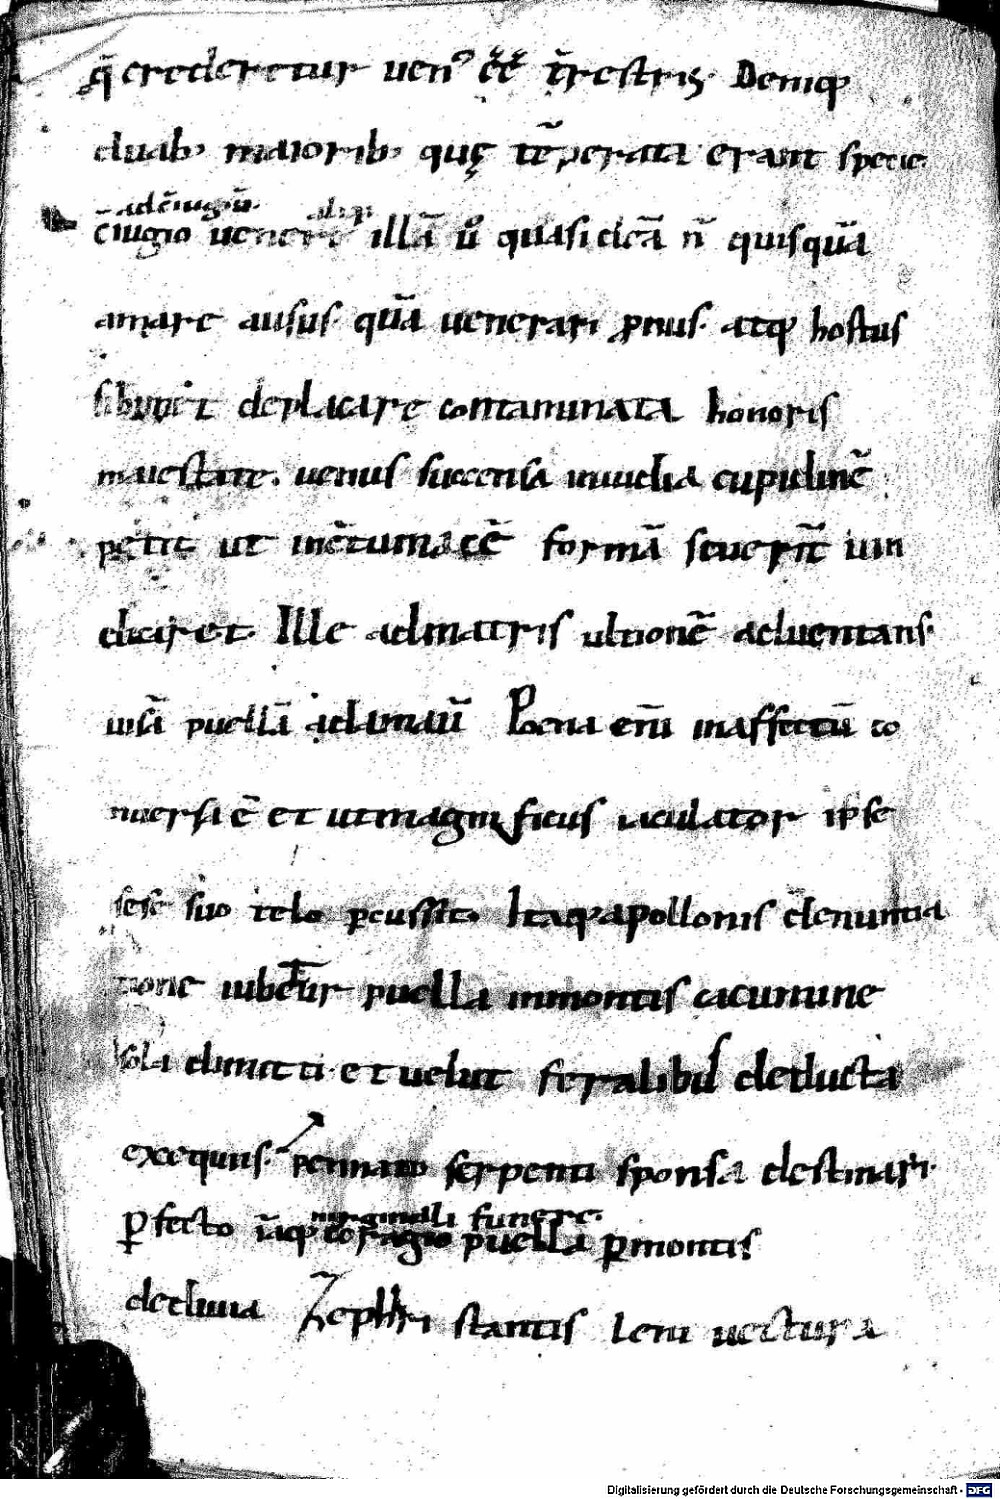 q̄ crederetur uen᷒ ēē t̄restris. Deniq;
duab; maiorib; quę tēperata erant specie.
ad c̄iugiū. aliqs
c̄iugio uenere illā ů quasi dicā n̄ quisquā
amare ausus. quā uenerari ꝓnus. atq; hostus
deplacare contaminata honoris
maiestate. uenus succensa inuidia cupidinē
petit ut inc̄tumacē formā seuerit̄ uin
dicaret. Ille admatris ultionē aduentans.
uisā puellā adamauit̄ Poena eni̅ inaffectū co
nuersa ē et utmagnificus iaculator ipse
sese suo telo ꝑcussit. Itaq; apollonis denuntia
tione iubet̄ur puella inmontis cacumine
sola dimitti. et uelut feralibus deducta
exequiis. pennato serpenti sponsa destinari.
marginali funere.
ꝑfecto ia̅q; coragio puella ꝑmontis
decliuia Zephiri stantis leni uectura
Digitalisierung gefördert durch die Deutsche Forschungsgemeinschaft - DFG